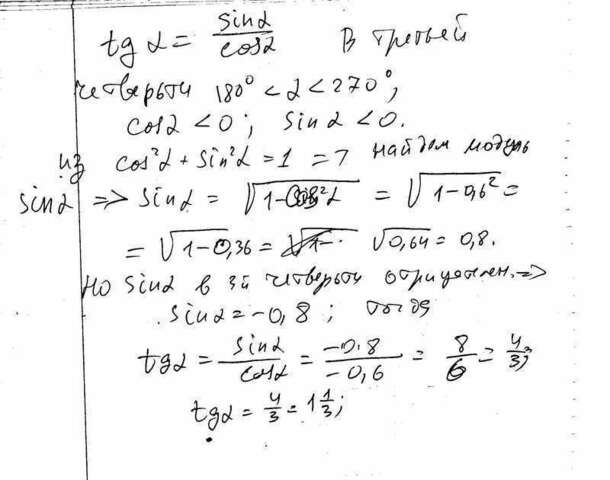 tg α = sinα / cosα В третьей
четверти 180° < α < 270°,
cosα < 0; sinα < 0.
из cos²α + sin²α = 1 => найдем модуль
sinα => sinα = √(1-cos²α) = √(1-0,6²) =
= √(1-0,36) = √0,64 = 0,8.
но sinα в 3й четверти отрицателен. =>
sinα = -0,8; тогда
tgα = sinα / cosα = -0,8 / -0,6 = 8/6 = 4/3;
tgα = 4/3 = 1 1/3;